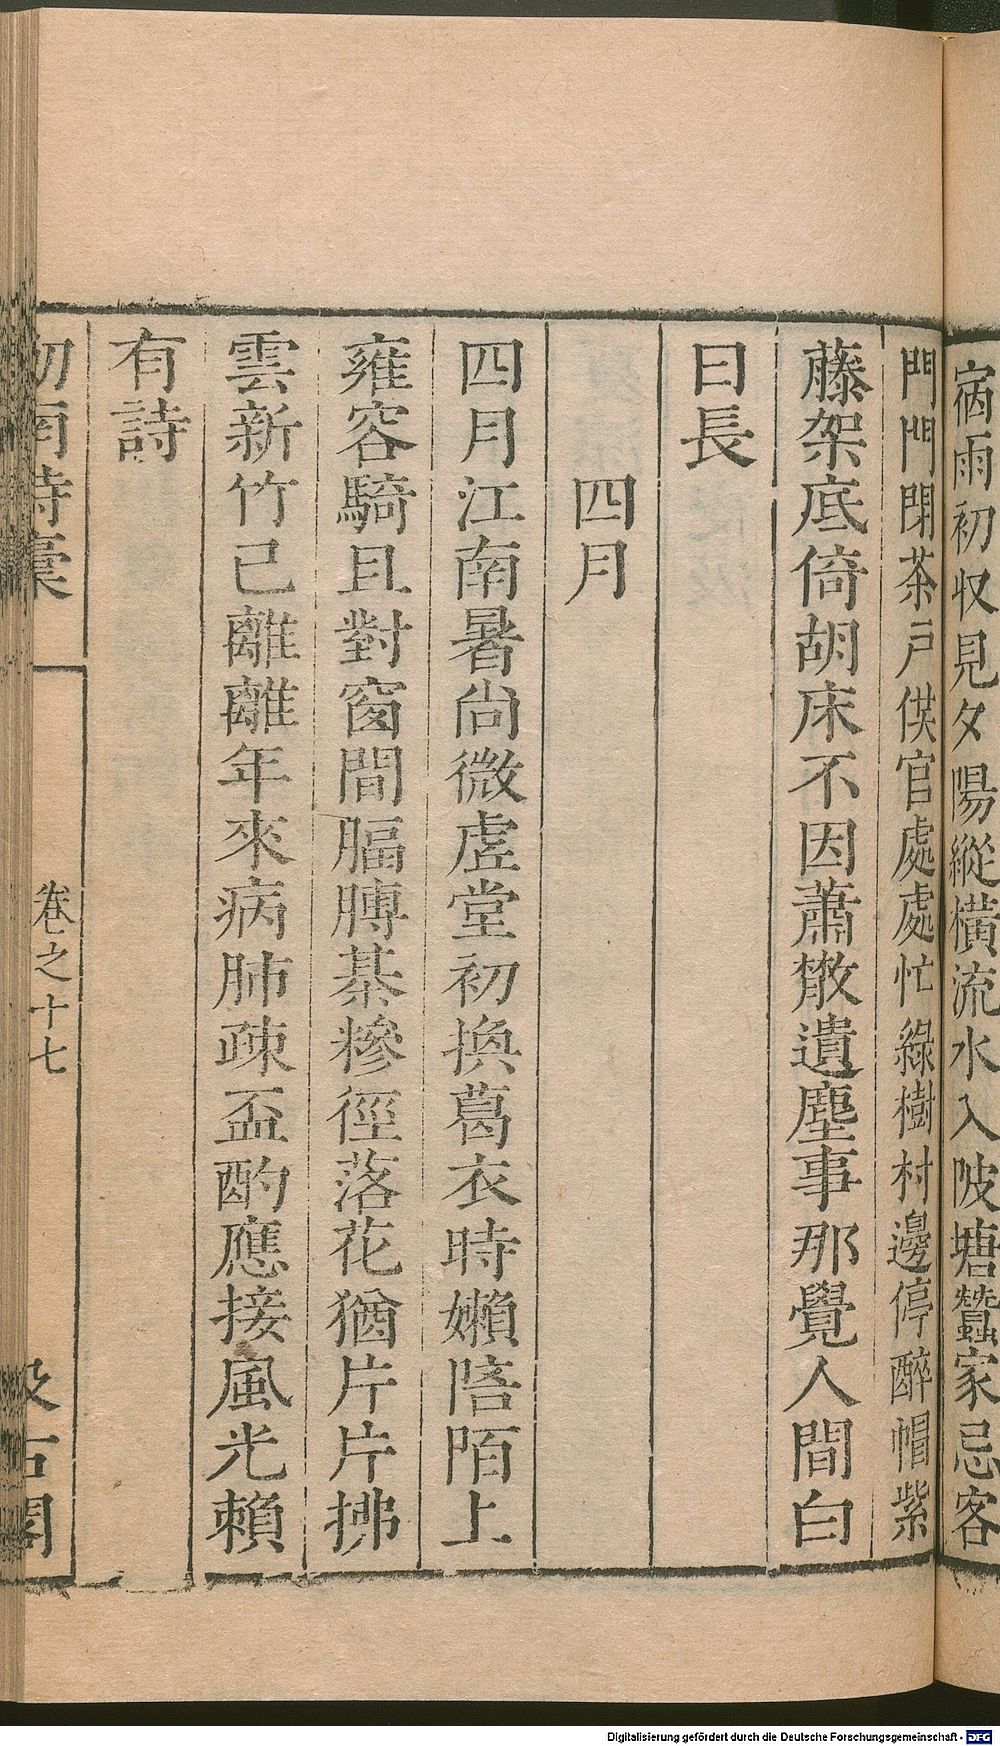 宿雨初收見夕陽縱橫流水入陂塘蠶家忌客
門門閉茶戶供官處處忙綠樹村邊停醉帽紫
藤架底倚胡床不因蕭散遺塵事那覺人間白
日長
四月
四月江南暑尚微虛堂初換葛衣時嬾陪陌上
雍容騎且對窗間腷膊棊糝徑落花猶片片拂
雲新竹已離離年來病肺疎盃酌應接風光賴
有詩
劒南詩稾
卷之十七
汲古閣
Digitalisierung gefördert durch die Deutsche Forschungsgemeinschaft - DFG